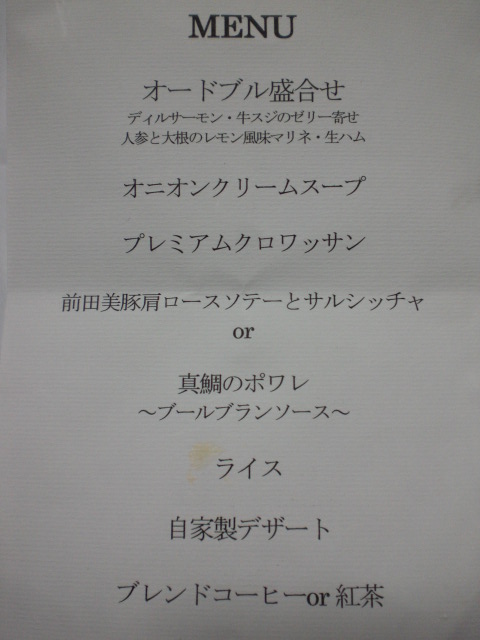 MENU
オードブル盛合せ
ディルサーモン・牛スジのゼリー寄せ
人参と大根のレモン風味マリネ・生ハム
オニオンクリームスープ
プレミアムクロワッサン
前田美豚肩ロースソテーとサルシッチャ
or
真鯛のポワレ
～ブールブランソース～
ライス
自家製デザート
ブレンドコーヒーor 紅茶